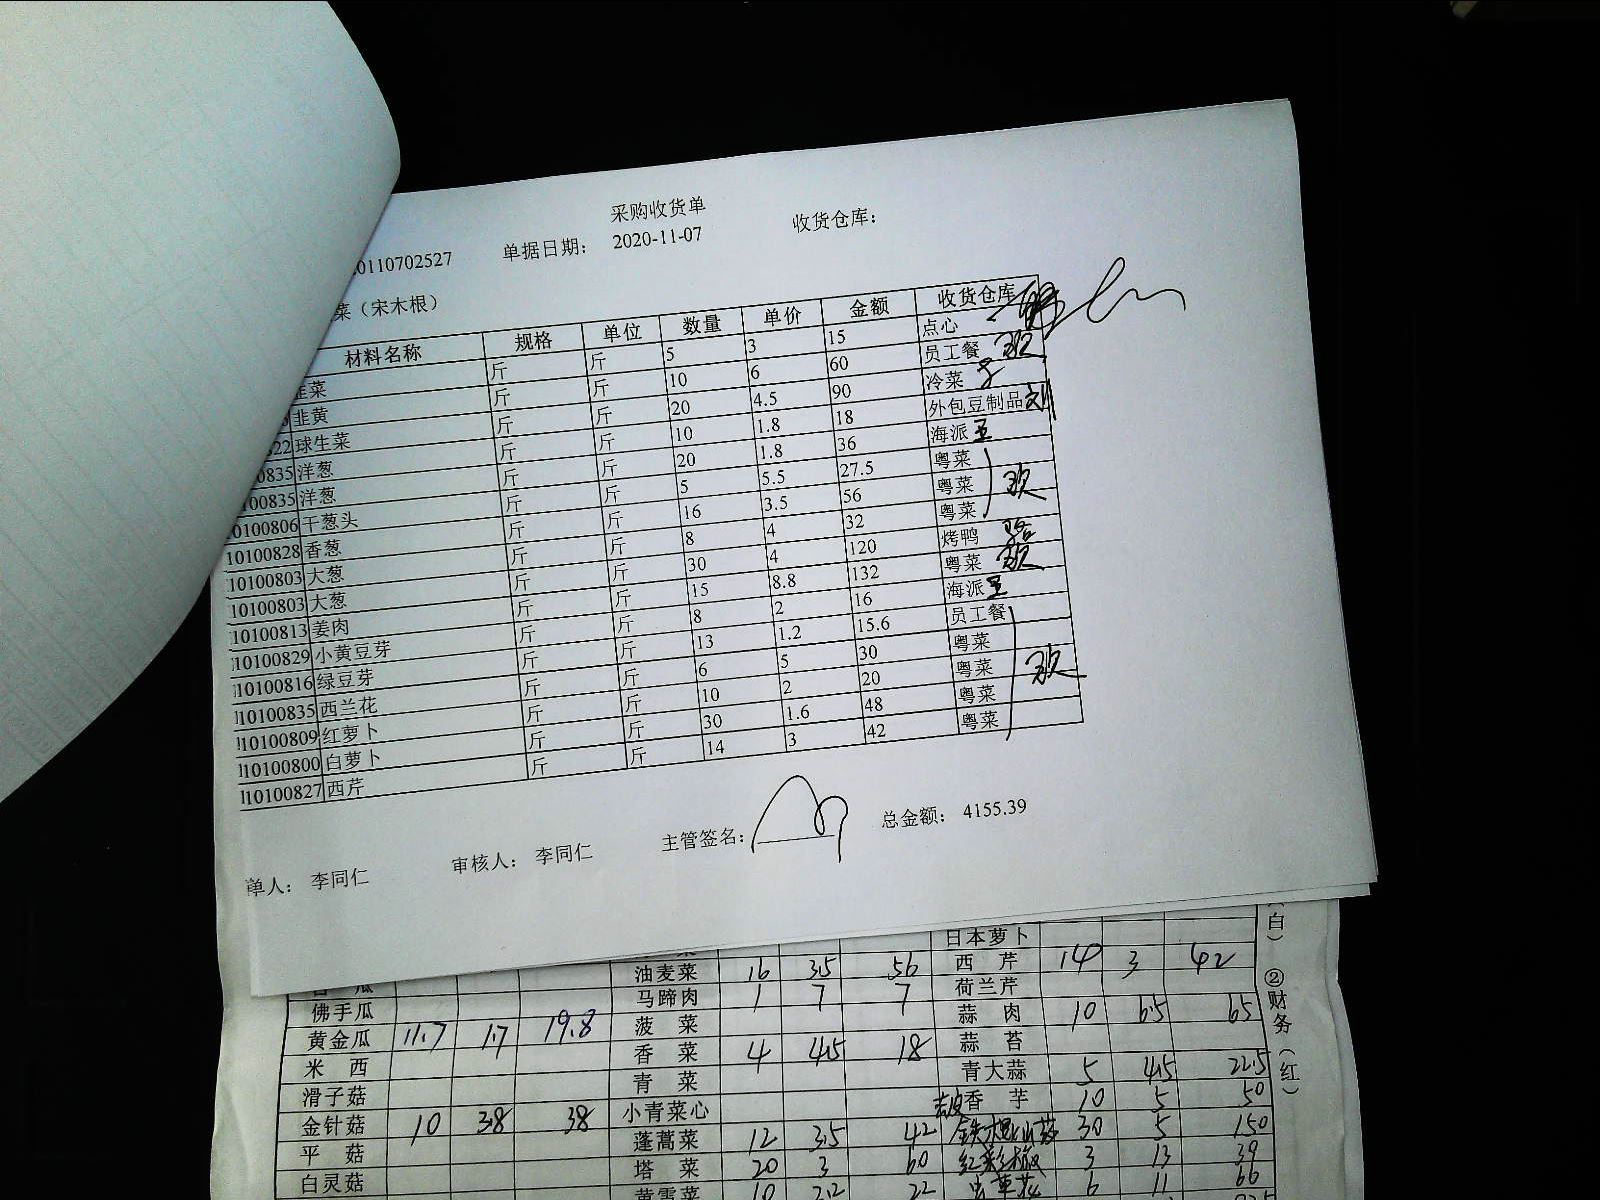 采购收货单
0110702527 单据日期： 2020-11-07 收货仓库：
菜（宋木根）
材料名称 规格 单位 数量 单价 金额 收货仓库
韭菜 斤 斤 5 3 15 点心
韭黄 斤 斤 10 6 60 员工餐
22 球生菜 斤 斤 20 4.5 90 冷菜
0835 洋葱 斤 斤 10 1.8 18 外包豆制品 刘
100835 洋葱 斤 斤 20 1.8 36 海派 王
0100806 干葱头 斤 斤 5 5.5 27.5 粤菜
10100828 香葱 斤 斤 16 3.5 56 粤菜
10100803 大葱 斤 斤 8 4 32 粤菜
10100803 大葱 斤 斤 30 4 120 烤鸭
10100813 姜肉 斤 斤 15 8.8 132 粤菜
10100829 小黄豆芽 斤 斤 8 2 16 海派 王
10100816 绿豆芽 斤 斤 13 1.2 15.6 员工餐
10100835 西兰花 斤 斤 6 5 30 粤菜
10100809 红萝卜 斤 斤 10 2 20 粤菜
10100800 白萝卜 斤 斤 30 1.6 48 粤菜
10100827 西芹 斤 斤 14 3 42 粤菜
单人： 李同仁 审核人： 李同仁 主管签名： 总金额： 4155.39
日本萝卜
油麦菜 16 3.5 56 西 芹 14 3 42
马蹄肉 1 7 7 荷兰芹
佛手瓜 菠 菜 蒜 肉 10 6.5 65
黄金瓜 11.7 1.7 19.8 香 菜 4 4.5 18 蒜 苔
米 西 青 菜 青大蒜 5 4.5 22.5
滑子菇 小青菜心 香 芋 10 5 50
金针菇 10 3.8 38 蓬蒿菜 12 3.5 42 铁棍山药 30 5 150
平 菇 塔 菜 20 3 60 红彩椒 3 13 39
白灵菇 黄雪菜 10 2.2 22 虫草花 6 11 66
（白） ②财务（红）